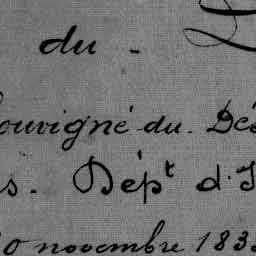 du -
ouvigné du Dés
s. Dépt d'I
0 novembre 183